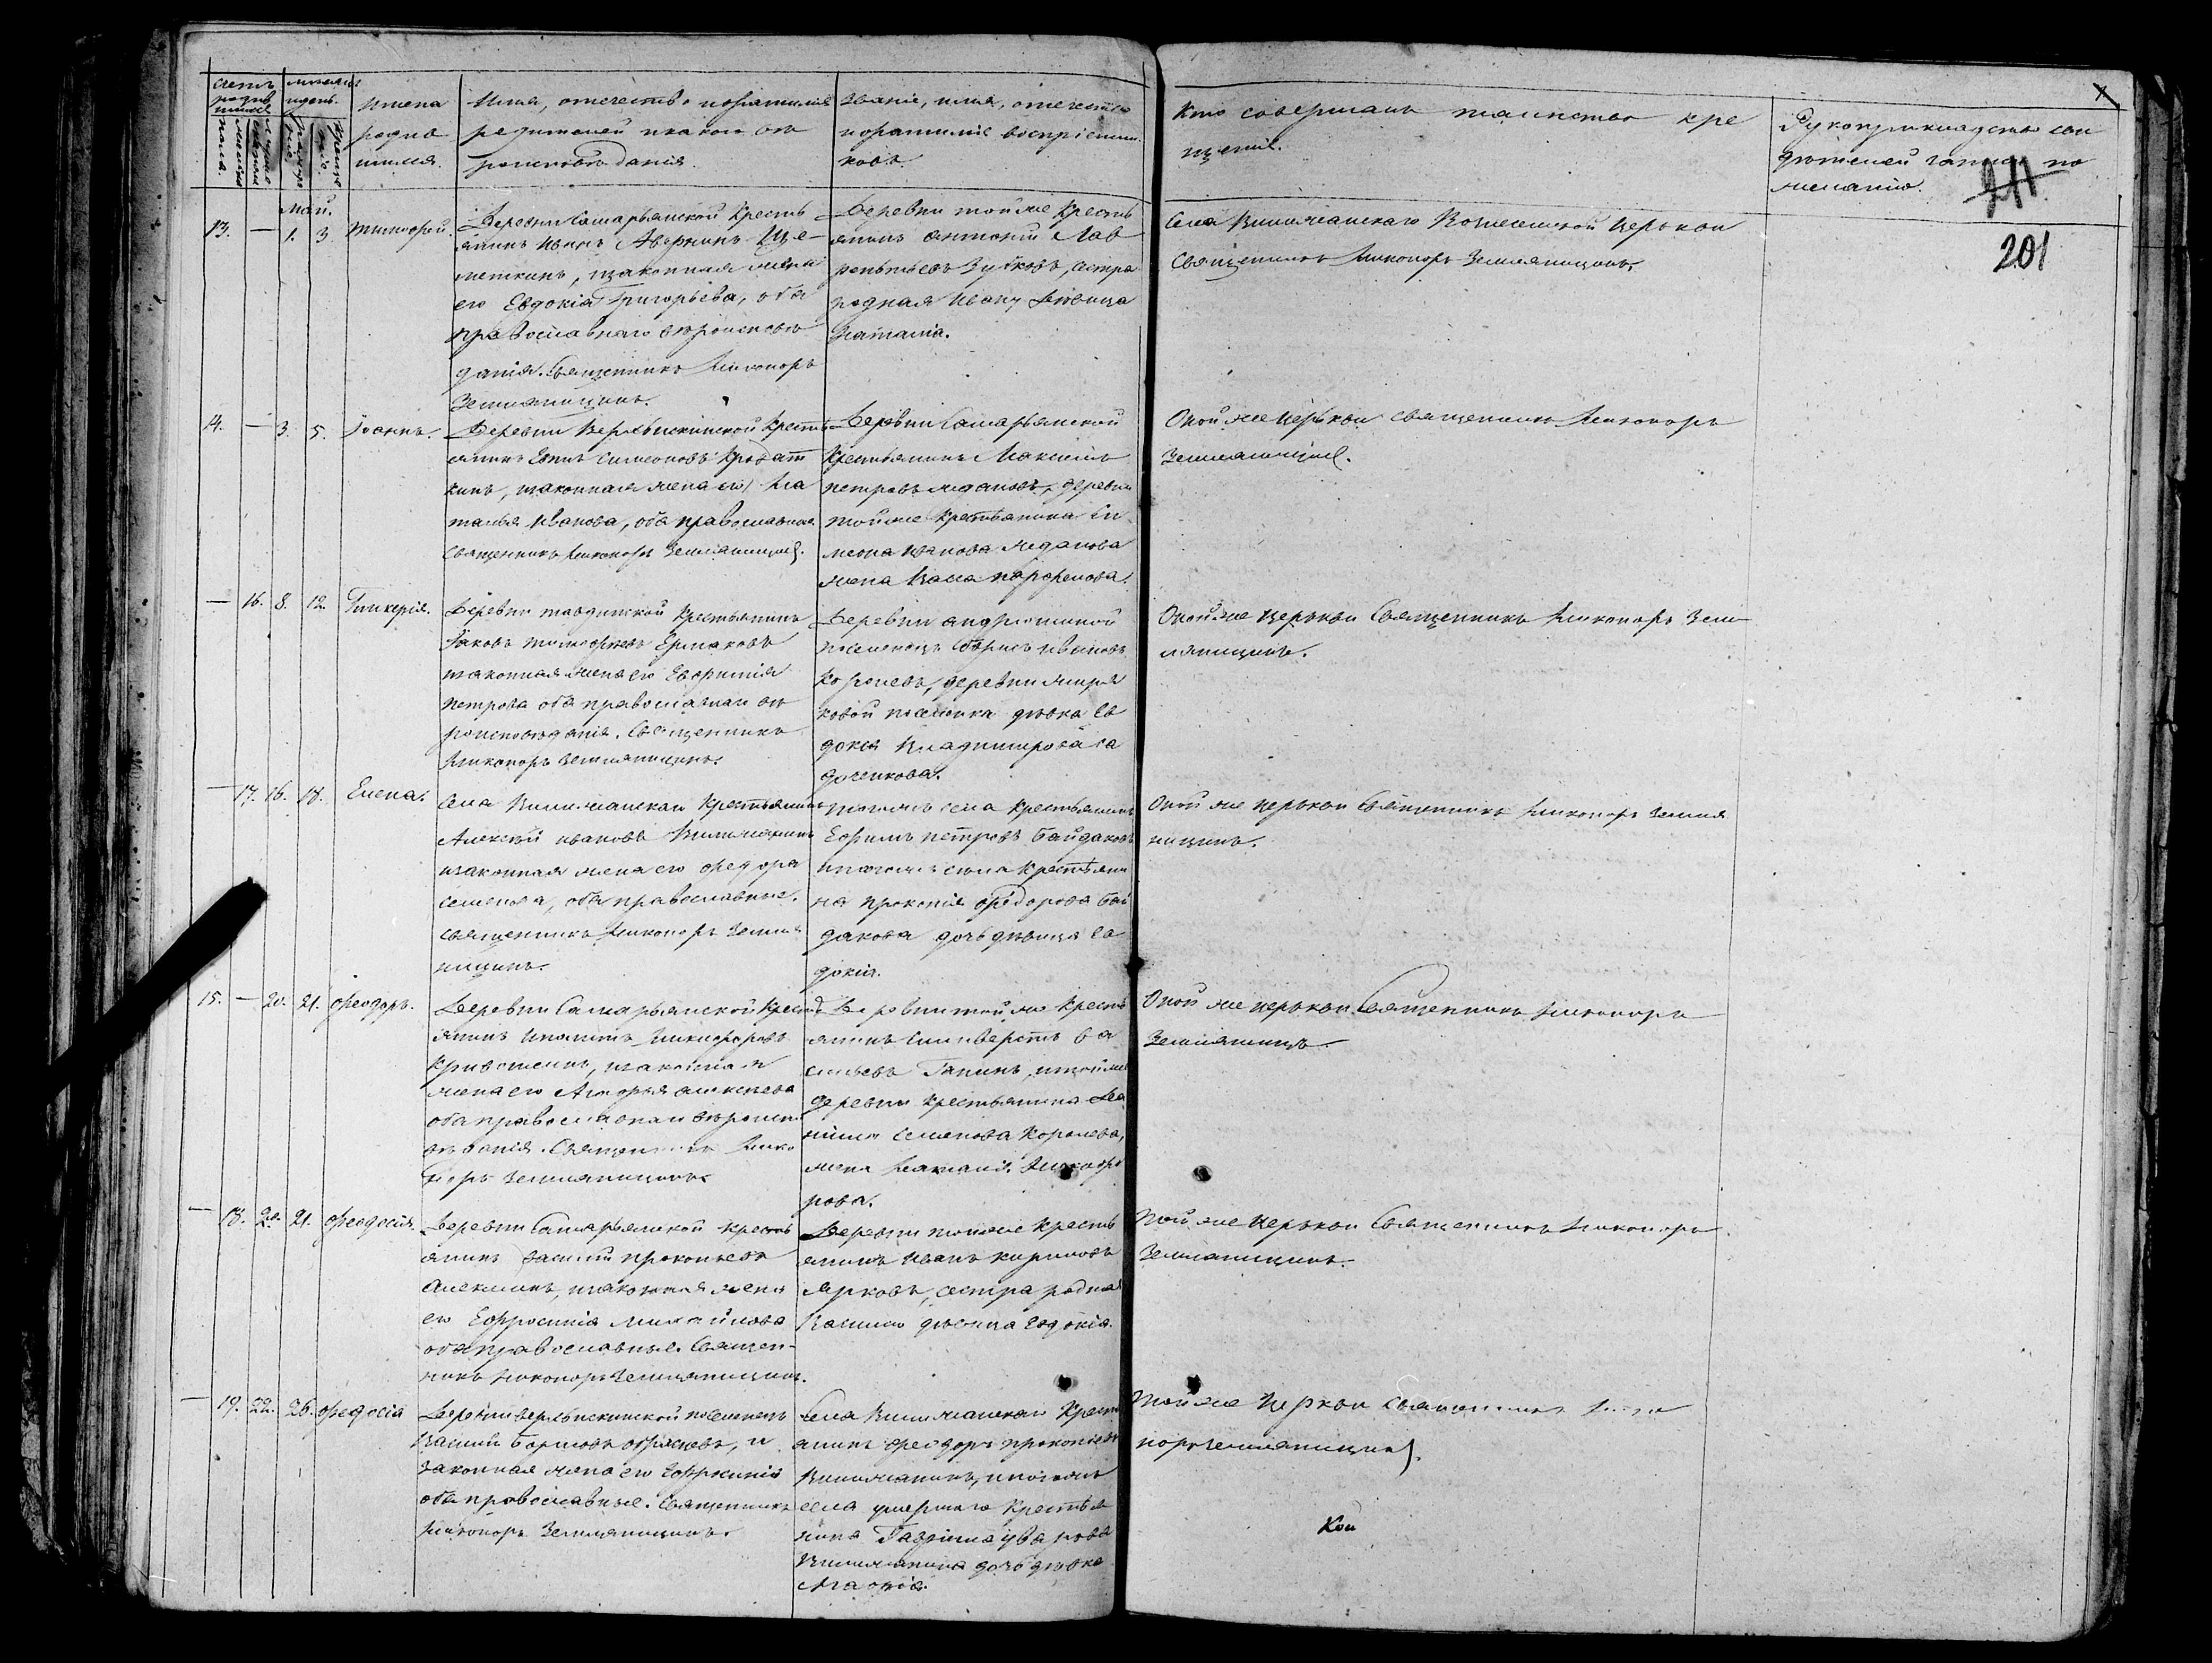 Счетъ родив шихся
мѣсяцъ и день.
Имена
родив
шихся.
Имя, отечество и фамилия
родителей и какого вѣ
роисповѣданія.
Званіе, имя, отечество
и фамиліе воспріемни
ковъ.
Кто совершалъ таинство кре
щенія.
Рукоприкладство сви
дѣтелей записи по
желанію.
241.
201
Май.
13. — 1. 3 Тимофей.
Деревни Самарьянской Кресть
янинъ Иванъ Аверкинъ Ще-
меткинъ, и законная жена
его Евдокія Григорьева, оба
православнаго вѣроисповѣ
данія. Священникъ Никоноръ
Земляницынъ.
Деревни той же Кресть
янинъ Антоній Лав
рентьевъ Зубковъ, сестра
родная Ивану дѣвица
Наталія.
Села Вилижанскаго Вознесенской Церькви
Священникъ Никоноръ Земляницынъ.
14. — 3. 5. Іоаннъ.
Деревни Верхвыскинской Кресть
янинъ Симеоновъ
законная жена его На
талья Иванова, оба православные
Священникъ Никоноръ Земляницынъ.
Деревни Самарьянской
Крестьянинъ Максимъ
Петровъ Ждановъ, деревни
той же Крестьянина Си
меона Иванова Жданова
жена Парфенова.
Оной же Церькви Священникъ Никоноръ
Земляницынъ.
— 16. 8. 12. Гликерія.
Деревни Крестьянинъ
Іаковъ Тимофеевъ Ермаковъ
законная жена его Евфимія
Петрова оба православнаго вѣ
роисповѣданія. Священникъ
Никоноръ Земляницынъ.
Деревни Андрюшиной
поселенецъ Борисъ Ивановъ
Королевъ, деревни
ковой дѣвка Ев
докія Владимирова
Оной же Церькви Священникъ Никоноръ Зем
ляницынъ.
— 17. 16. 18. Елена.
Села Вилижанскаго Крестьянинъ
Алексѣй Ивановъ Вилижанинъ
и законная жена его Феодора
Семенова, оба православные.
Священникъ Никоноръ Земля
ницынъ.
Тогожъ села Крестьянинъ
Ефимъ Петровъ Байдаковъ
и тогожъ села Крестьяни
на Прокопія Федорова Бай
дакова дочь дѣвица Ев
докія.
Оной же Церькви Священникъ Никоноръ Земля
ницынъ.
15. — 20. 21. Феодоръ.
Деревни Самарьянской Кресть
янинъ Ипатъ Никифоровъ
и законная
жена его Агафья Алексѣева
оба православнаго вѣроиспо
вѣданія. Священникъ Нико
норъ Земляницынъ.
Деревни той же Кресть
янинъ Силиверстъ Ва
сильевъ Гапинъ, и той же
деревни Крестьянина Да
ниила Семенова Королева,
жена Наталія Никифо
рова.
Оной же Церькви Священникъ Никоноръ
Земляницынъ.
— 18. 20. 21. Феодосія.
Деревни Самарьянской Кресть
янинъ Василій Прокопьевъ
Алекминъ, и законная жена
его Ефросинія Михайлова
оба православные. Священ-
никъ Никоноръ Земляницынъ.
Деревни той же Кресть
янинъ Иванъ Кириловъ
Ярковъ, сестра родная
Василію дѣвица Евдокія.
Той же Церькви Священникъ Никоноръ
Земляницынъ.
— 19. 22. 26. Феодосія
Деревни Верхвыскинской поселенецъ
Василій Борисовъ и
законная жена его Ефросинія
оба православные. Священникъ
Никоноръ Земляницынъ.
Села Вилижанскаго Кресть
янинъ Феодоръ Прокопьевъ
Вилижанинъ, и тогожъ
села умершаго Крестья
нина Гавріила Уварова
Вилижанина дочь дѣвка
Агафія.
Той же Церкви Священникъ Нико
норъ Земляницынъ.
Кои